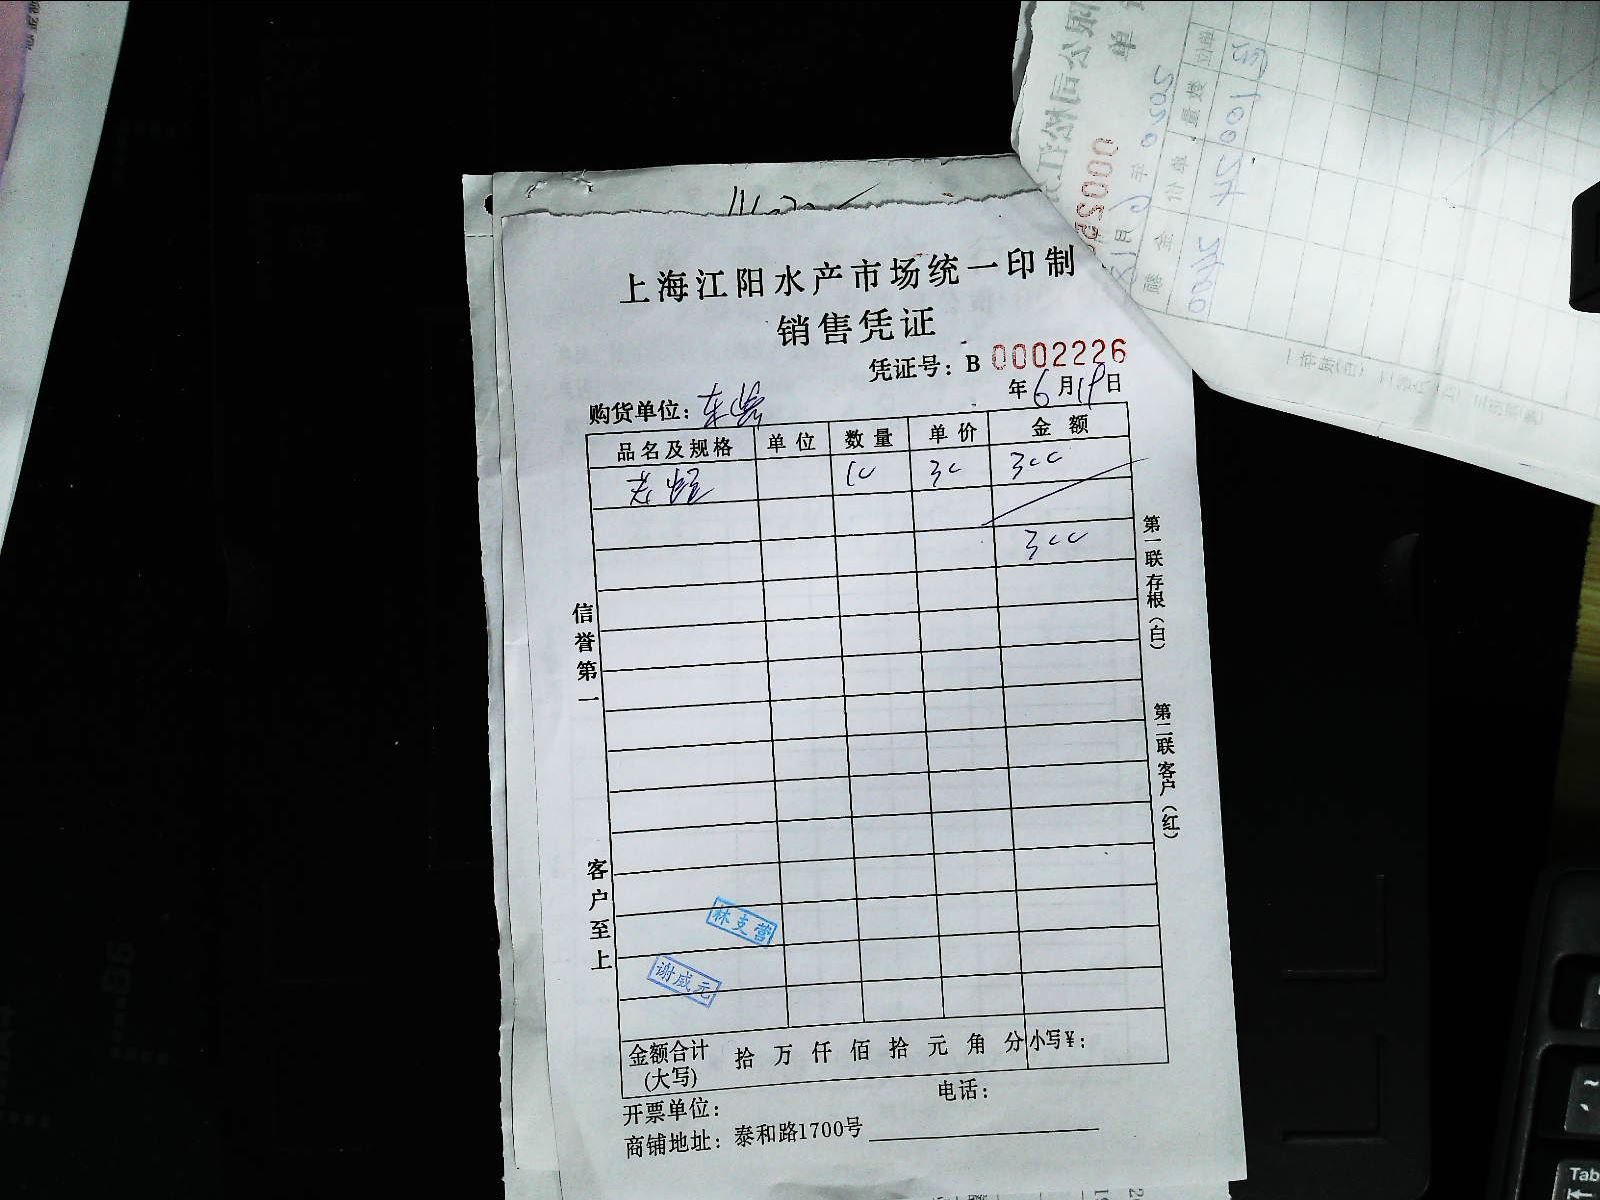 上海江阳水产市场统一印制
销售凭证
凭证号：B 0002226
年6月19日
购货单位：
品名及规格 单位 数量 单价 金额
10 30 300
300
信誉第一
客户至上
第一联存根（白）
第二联客户（红）
林支营
谢成元
金额合计 拾万仟佰拾元角分 小写¥：
(大写)
开票单位： 电话：
商铺地址：泰和路1700号
Tab